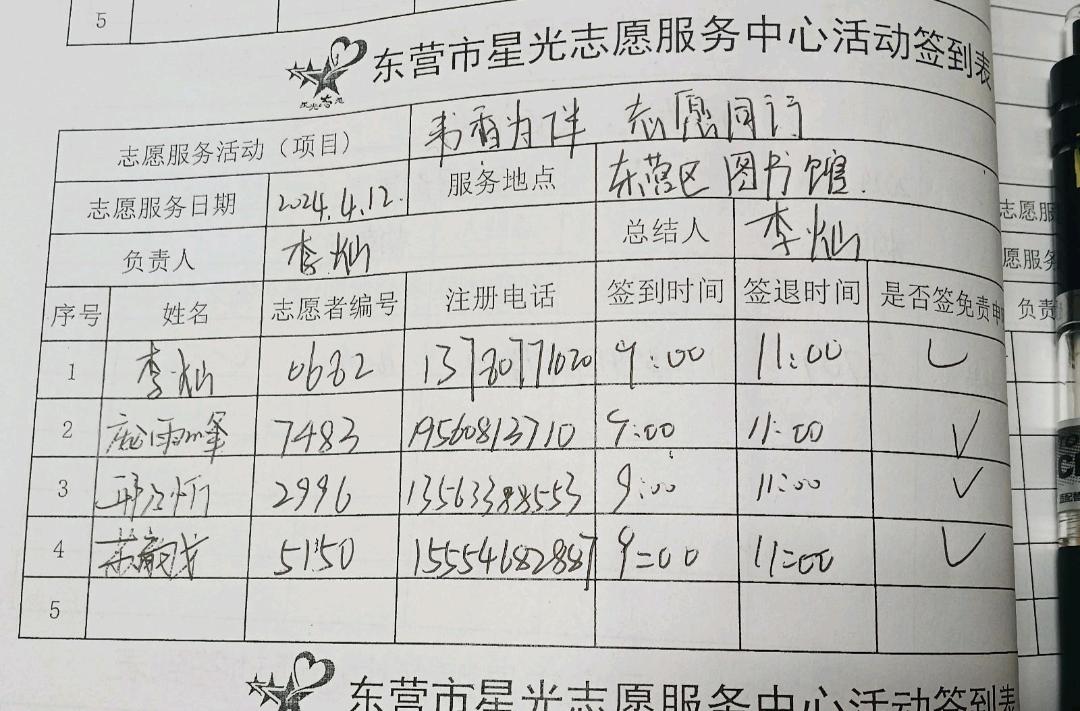 5
东营市星光志愿服务中心活动签到表
星光志愿
志愿服务活动（项目） 书香为伴 志愿同行
志愿服务日期 2024.4.12. 服务地点 东营区图书馆.
负责人 李灿 总结人 李灿
序号 姓名 志愿者编号 注册电话 签到时间 签退时间 是否签免责申
1 李灿 0682 13780771020 9:00 11:00 ✓
2 7483 19560813710 9:00 11:00 ✓
3 2996 13563388553 9:00 11:00 ✓
4 5150 15554682887 9:00 11:00 ✓
5
东营市星光志愿服务中心活动签到表
志愿服
愿服务
负责